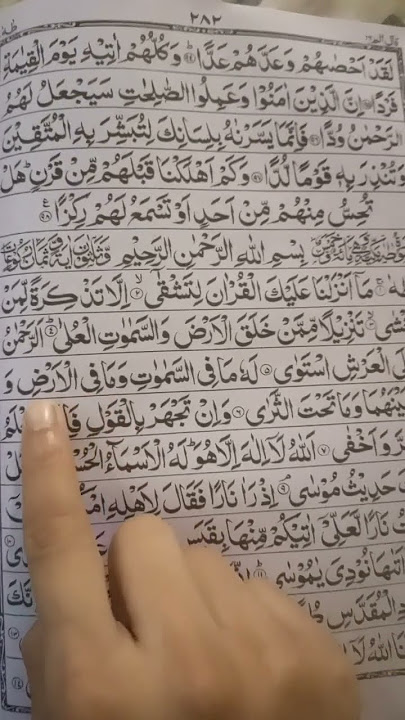 قال الم ٢٨٢ طه
لَقَدْ اَحْصٰىهُمْ وَعَدَّهُمْ عَدًّا ۞ وَكُلُّهُمْ اٰتِيْهِ يَوْمَ الْقِيٰمَةِ
فَرْدًا ۞ اِنَّ الَّذِيْنَ اٰمَنُوْا وَعَمِلُوا الصّٰلِحٰتِ سَيَجْعَلُ لَهُمُ
الرَّحْمٰنُ وُدًّا ۞ فَاِنَّمَا يَسَّرْنٰهُ بِلِسَانِكَ لِتُبَشِّرَ بِهِ الْمُتَّقِيْنَ
وَتُنْذِرَ بِهٖ قَوْمًا لُّدًّا ۞ وَكَمْ اَهْلَكْنَا قَبْلَهُمْ مِّنْ قَرْنٍ هَلْ
تُحِسُّ مِنْهُمْ مِّنْ اَحَدٍ اَوْ تَسْمَعُ لَهُمْ رِكْزًا
بِسْمِ اللهِ الرَّحْمٰنِ الرَّحِيْمِ
مَآ اَنْزَلْنَا عَلَيْكَ الْقُرْاٰنَ لِتَشْقٰٓى ۲ اِلَّا تَذْكِرَةً لِّمَنْ
تَنْزِيْلًا مِّمَّنْ خَلَقَ الْاَرْضَ وَالسَّمٰوٰتِ الْعُلٰى ۴ اَلرَّحْمٰنُ
الْعَرْشِ اسْتَوٰى ۵ لَهٗ مَا فِى السَّمٰوٰتِ وَمَا فِى الْاَرْضِ وَ
وَمَا تَحْتَ الثَّرٰى ۶ وَاِنْ تَجْهَرْ بِالْقَوْلِ
وَاَخْفٰى ۷ اَللّٰهُ لَآ اِلٰهَ اِلَّا هُوَ لَهُ الْاَسْمَآءُ
حَدِيْثُ مُوْسٰى ۹ اِذْ رَاٰ نَارًا فَقَالَ لِاَهْلِهِ
نَارًا لَّعَلِّىْٓ اٰتِيْكُمْ مِّنْهَا
اَتٰىهَا نُوْدِىَ يٰمُوْسٰى
الْمُقَدَّسِ
اللهُ لَآ